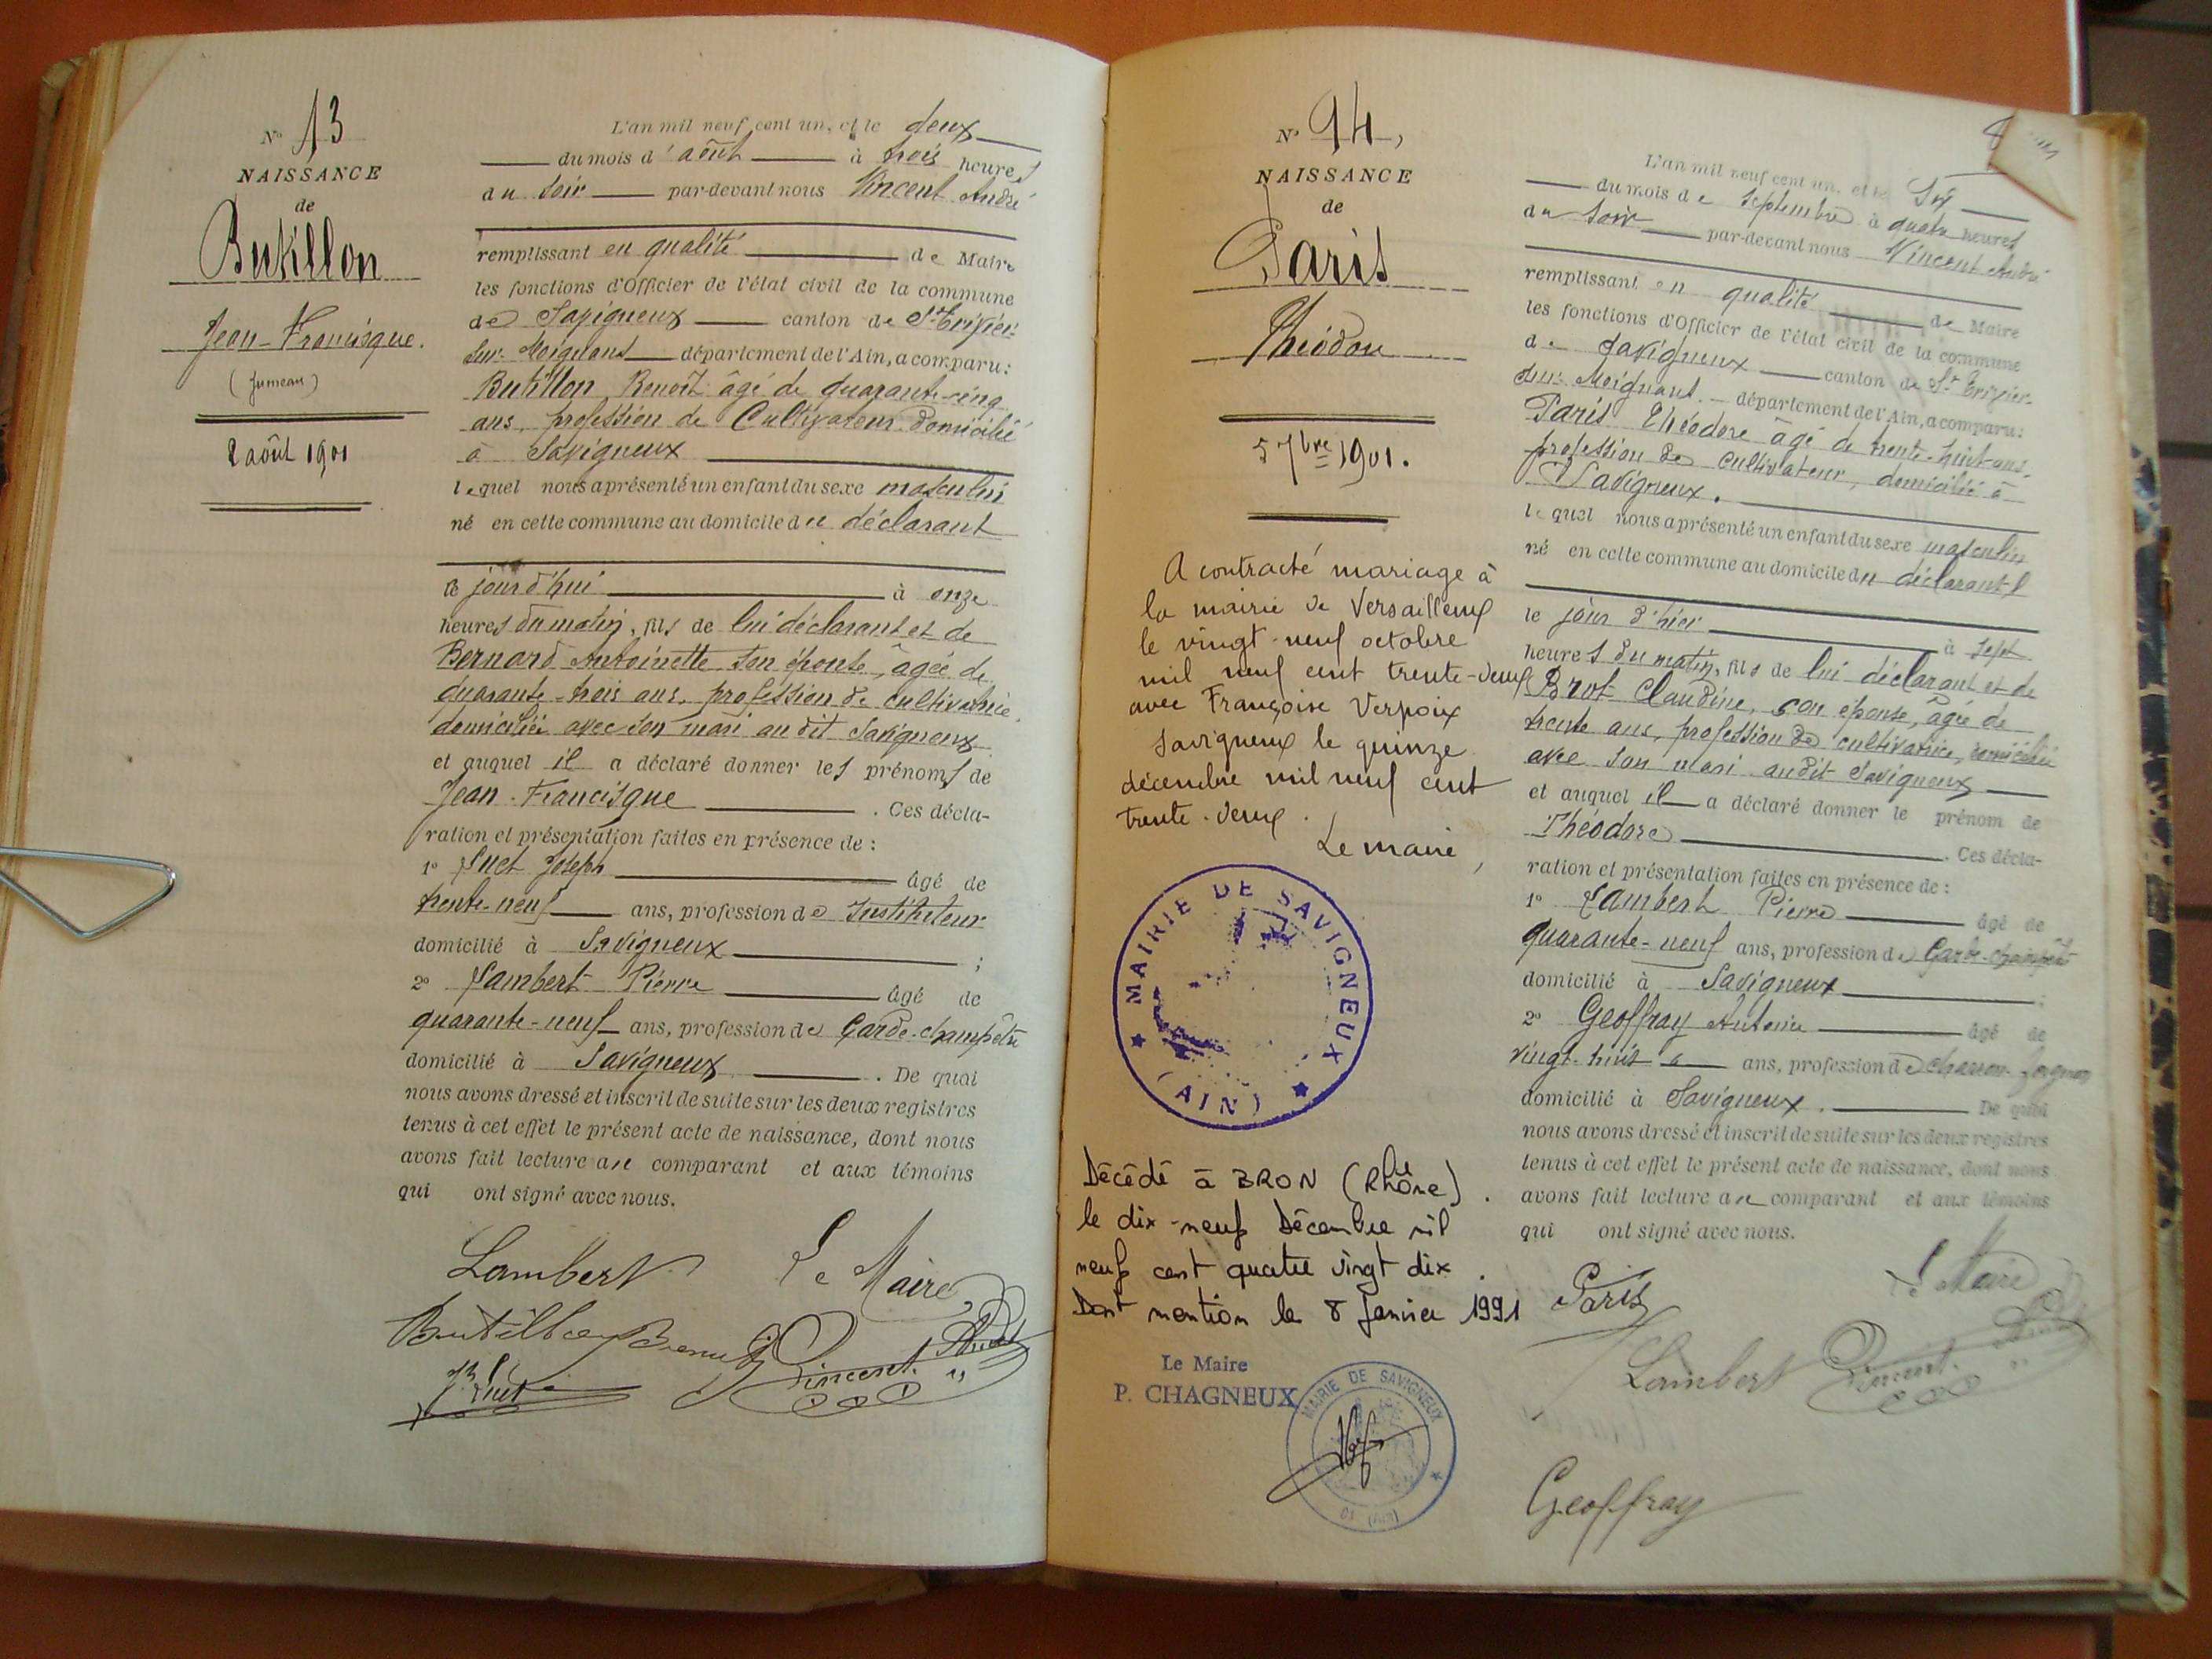 N° 13
NAISSANCE
de
Butillon
Jean-Francisque.
(Jumeau)
2 août 1901
L'an mil neuf cent un, et le deux
du mois d'août à trois heures
du soir par-devant nous Vincent André
remplissant en qualité de Maire
les fonctions d'Officier de l'état civil de la commune
de Savigneux canton de St Trivier-
sur-Moignans département de l'Ain, a comparu:
Butillon Benoît âgé de quarante-cinq
ans, profession de Cultivateur domicilié
à Savigneux
lequel nous a présenté un enfant du sexe masculin
né en cette commune au domicile du déclarant
le jourd'hui à onze
heures du matin, fils de lui déclarant et de
Bernard Antoinette son épouse, âgée de
quarante-trois ans, profession de cultivatrice,
domiciliée avec son mari au dit Savigneux
et auquel il a déclaré donner les prénoms de
Jean-Francisque . Ces décla-
ration et présentation faites en présence de :
1° Suet Joseph âgé de
trente-neuf ans, profession de Instituteur
domicilié à Savigneux ;
2° Lambert Pierre âgé de
quarante-neuf ans, profession de Garde-champêtre
domicilié à Savigneux . De quoi
nous avons dressé et inscrit de suite sur les deux registres
tenus à cet effet le présent acte de naissance, dont nous
avons fait lecture au comparant et aux témoins
qui ont signé avec nous.
Lambert Le Maire,
Butillon Benoit Vincent André
J. Suet
N° 14,
NAISSANCE
de
Paris
Théodore
5 7bre 1901.
A contracté mariage à
la mairie de Versailleux
le vingt-neuf octobre
mil neuf cent trente-deux
avec Françoise Verpoix
Savigneux le quinze
décembre mil neuf cent
trente-deux.
Le maire,
MAIRIE DE SAVIGNEUX
(AIN)
Décédé à BRON (Rhône)
le dix-neuf Décembre mil
neuf cent quatre vingt dix.
Dont mention le 8 Janvier 1991
Le Maire
P. CHAGNEUX
MAIRIE DE SAVIGNEUX
01 (Ain)
L'an mil neuf cent un, et le six
du mois de septembre à quatre heures
du soir par-devant nous Vincent André
remplissant en qualité de Maire
les fonctions d'Officier de l'état civil de la commune
de Savigneux canton de St Trivier-
sur-Moignans département de l'Ain, a comparu:
Paris Théodore âgé de trente-huit ans,
profession de cultivateur, domicilié à
Savigneux.
lequel nous a présenté un enfant du sexe masculin
né en cette commune au domicile du déclarant
le jour d'hier à sept
heures du matin, fils de lui déclarant et de
Brot Claudine, son épouse, âgée de
trente ans, profession de cultivatrice, domiciliée
avec son mari audit Savigneux
et auquel il a déclaré donner le prénom de
Théodore . Ces décla-
ration et présentation faites en présence de :
1° Lambert Pierre âgé de
quarante-neuf ans, profession de Garde-champêtre
domicilié à Savigneux ;
2° Geoffray Antoine âgé de
vingt-huit ans, profession de charron-forgeron
domicilié à Savigneux. De quoi
nous avons dressé et inscrit de suite sur les deux registres
tenus à cet effet le présent acte de naissance, dont nous
avons fait lecture au comparant et aux témoins
qui ont signé avec nous.
Paris Le Maire
Lambert Vincent André
Geoffray